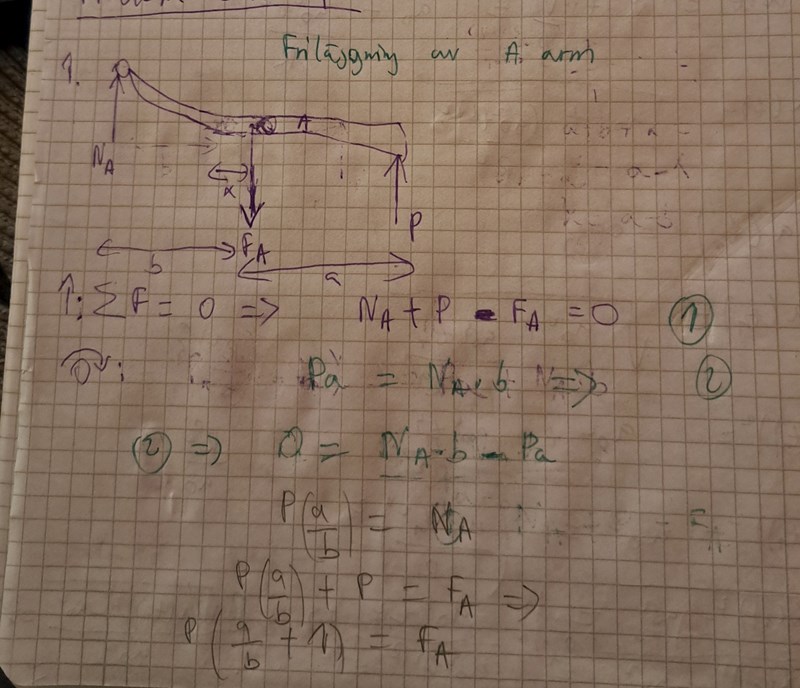 Friläggning av A arm
1.
A
N_A
x
F_A
P
b
a
↑: ΣF = 0 => N_A + P - F_A = 0 ①
Pa = N_A · b => ②
② => 0 = N_A · b - Pa
P(a/b) = N_A
P(a/b) + P = F_A =>
P(a/b + 1) = F_A